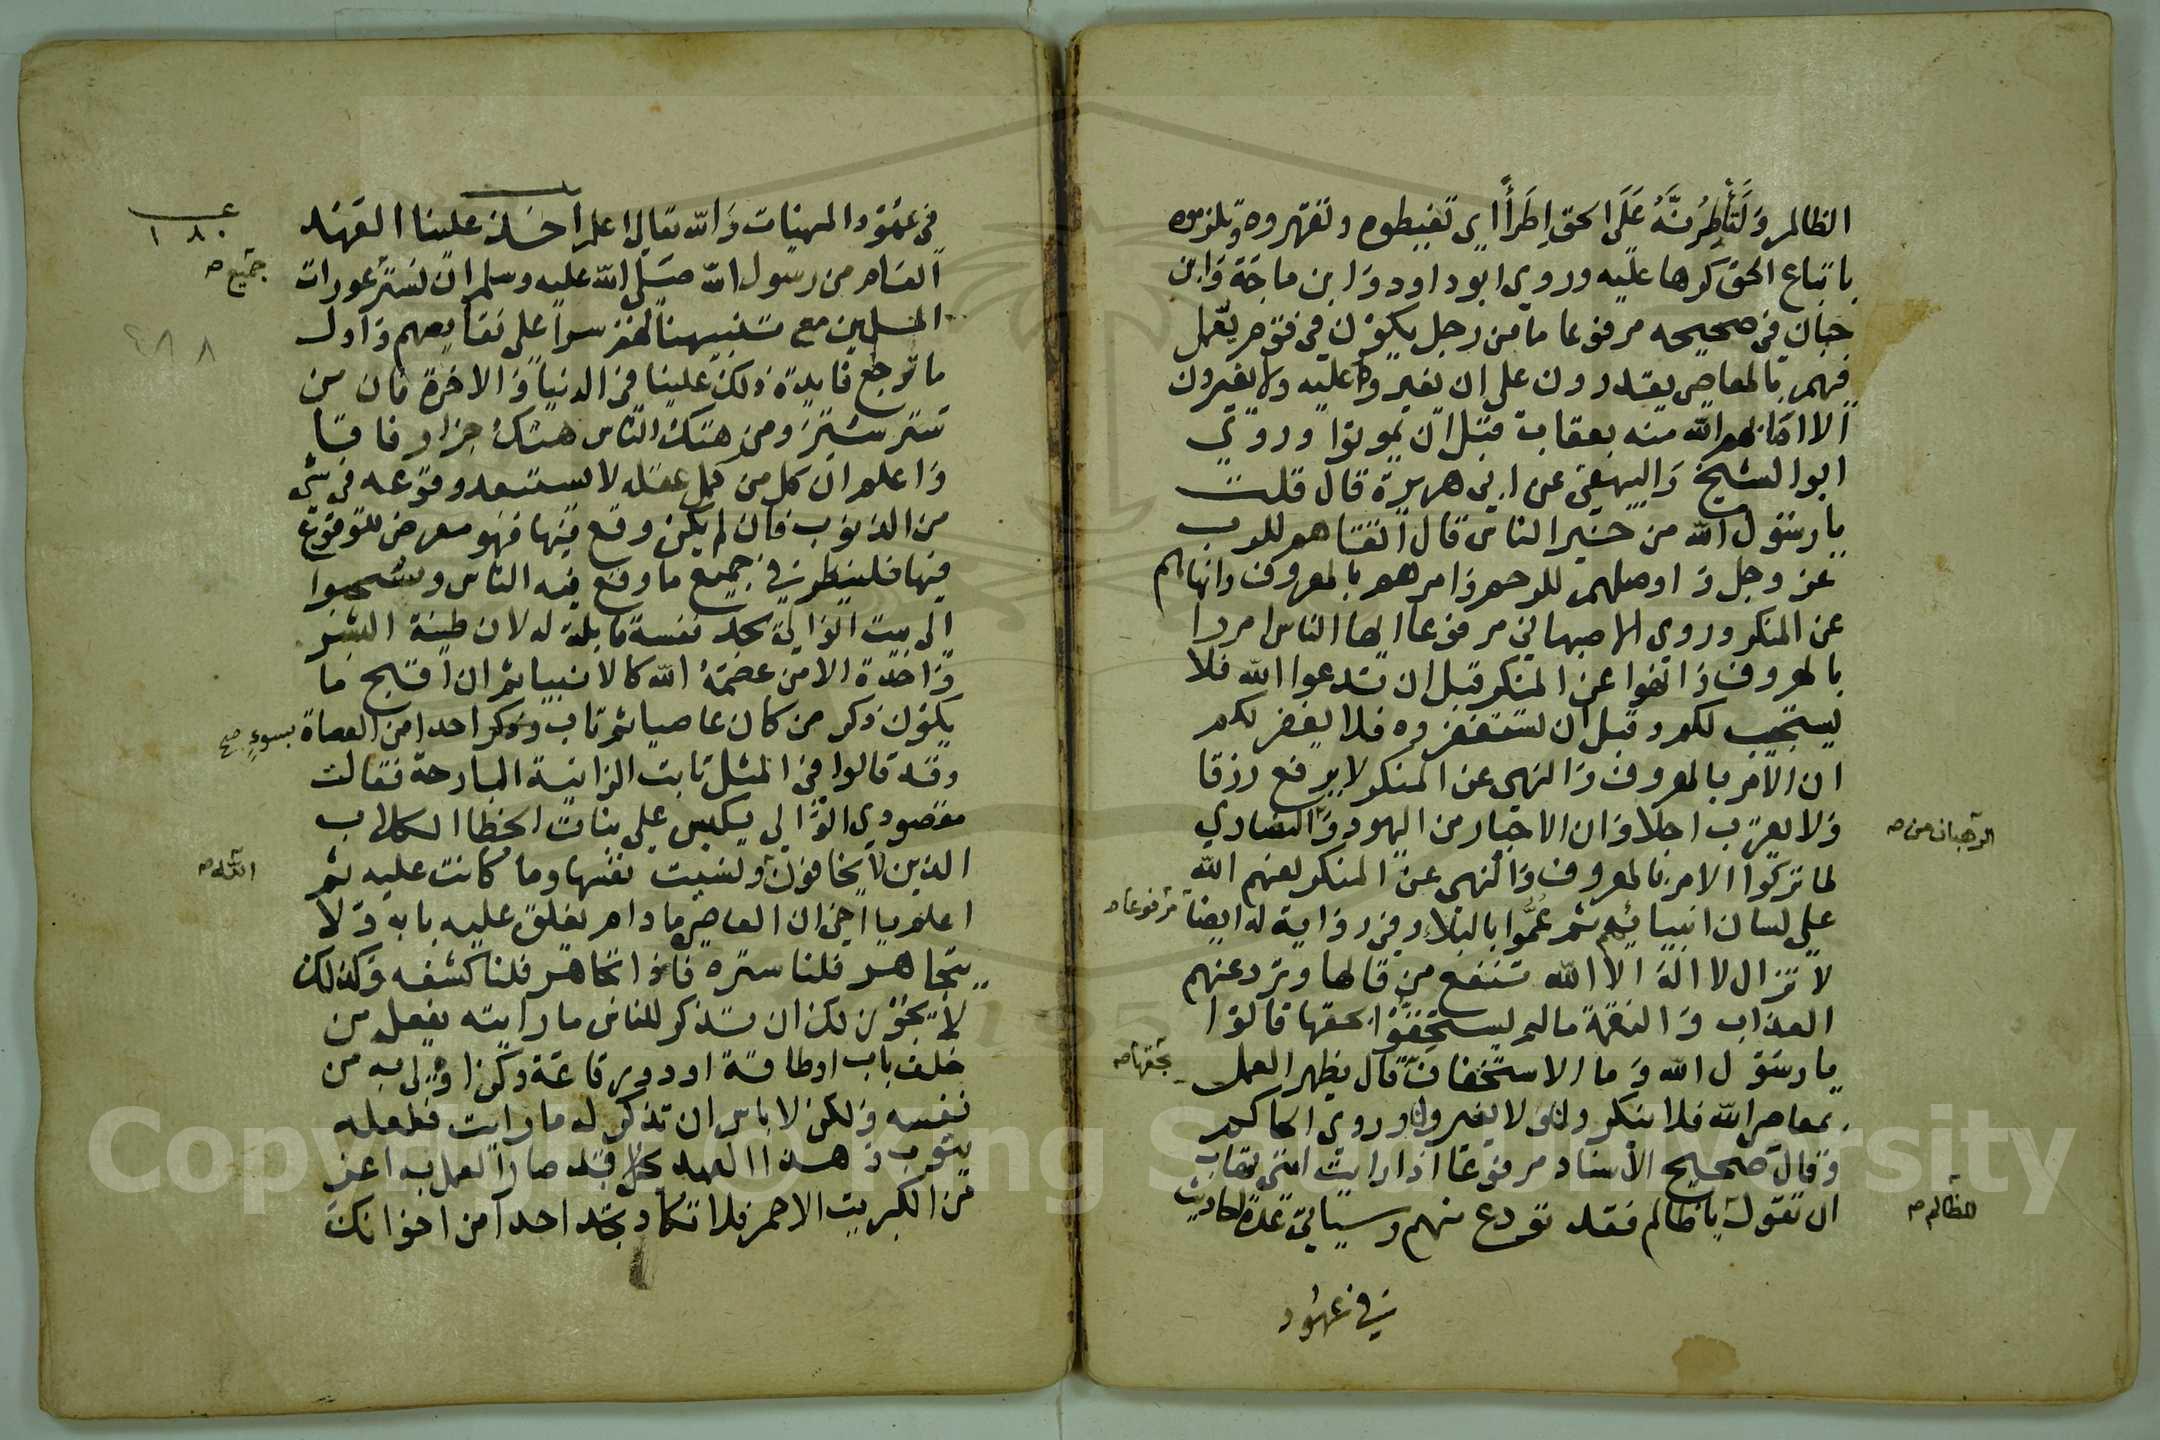 الظالم ولتأطرنه على الحق اطرأ اى تغبطوه وتقهروه وتلزموه
باتباع الحق كرها عليه وروى ابو داود وابن ماجة وابن
حبان في صحيحه مرفوعا ما من رجل يكون في قوم يعمل
فيهم بالمعاصى يقدرون على ان يغيروا عليه ولا يغيرون
الا اصابهم الله منه بعقاب قبل ان يموتوا وروى
ابو الشيخ والبيهقى عن ابى هريرة قال قلت
يا رسول الله من خير الناس قال اتقاهم للرب
عز وجل واوصلهم للرحم وامرهم بالمعروف وانهاهم
عن المنكر وروى الاصبهانى مرفوعا ايها الناس امروا
بالمعروف وانهوا عن المنكر قبل ان تدعوا الله فلا
يستجيب لكم وقبل ان تستغفروه فلا يغفر لكم
ان الامر بالمعروف والنهى عن المنكر لا يرفع رزقا
ولا يقرب اجلا وان الاحبار من اليهود والنصارى
الرهبان من صح
لما تركوا الامر بالمعروف والنهى عن المنكر لعنهم الله
على لسان انبيائهم ثم عموا بالبلاء وفى رواية له ايضا
مرفوعا صح
لا تزال لا اله الا الله تنفع من قالها وترد عنهم
العذاب والنقمة ما لم يستخفوا بحقها قالوا
يا رسول الله وما الاستخفاف قال يظهر العمل
بحقها صح
بمعاصى الله فلا ينكرون ولا يغيرون وروى الحاكم
وقال صحيح الاسناد مرفوعا اذا رايت امتى تهاب
ان تقول يا ظالم فقد تودع منهم وسياتى عدة احاديث
للظالم صح
فى عهود
فى عهود المنهيات والله تعالى اعلم اخذ علينا العهد
١٨٠
العام من رسول الله صلى الله عليه وسلم ان نستر عورات
جميع صح
المسلمين مع تنبيهنا لهم سرا على نقايصهم واول
٤٨٨
ما ترجع فايدة ذلك علينا فى الدنيا والاخرة فان من
ستر ستر ومن هتك الناس هتك جزاء وفاقا
واعلم ان كل من كمل عقله لا يستبعد وقوعه فى شى
من الذنوب فان لم يكن وقع فيها فهو معرض للوقوع
فيها فلينظر فى جميع ما وقع فيه الناس وسحبوا
الى بيت الوالى يجد نفسه قابلة له لان طينة البشر
واحدة الا من عصمه الله كالانبيا ثم ان اقبح ما
يكون ذكر من كان عاصيا ثم تاب وذكر احدا من العصاة بسوء صح
وقد قالوا فى المثل تابت الزانية البارحة فقالت
مقصودى الوالى يكبس على بنات الخطا الكلاب
الذين لا يخافون ونسيت نفسها وما كانت عليه ثم
الله صح
اعلم يا اخى ان العاصى ما دام يغلق عليه بابه ولا
يتجاهر فلنا ستره فاذا تجاهر فلنا كشفه وكذلك
لا يجوز لك ان تذكر للناس ما رايته يفعل من
خلف باب او طاقة او دور قاعة وكن اولى به من
نفسه ولكن لا باس ان تذكر له ما رايت فعله
يتوب وهذا العهد قد صار العمل به اعز
من الكبريت الاحمر فلا تكاد تجد احدا من اخوانك